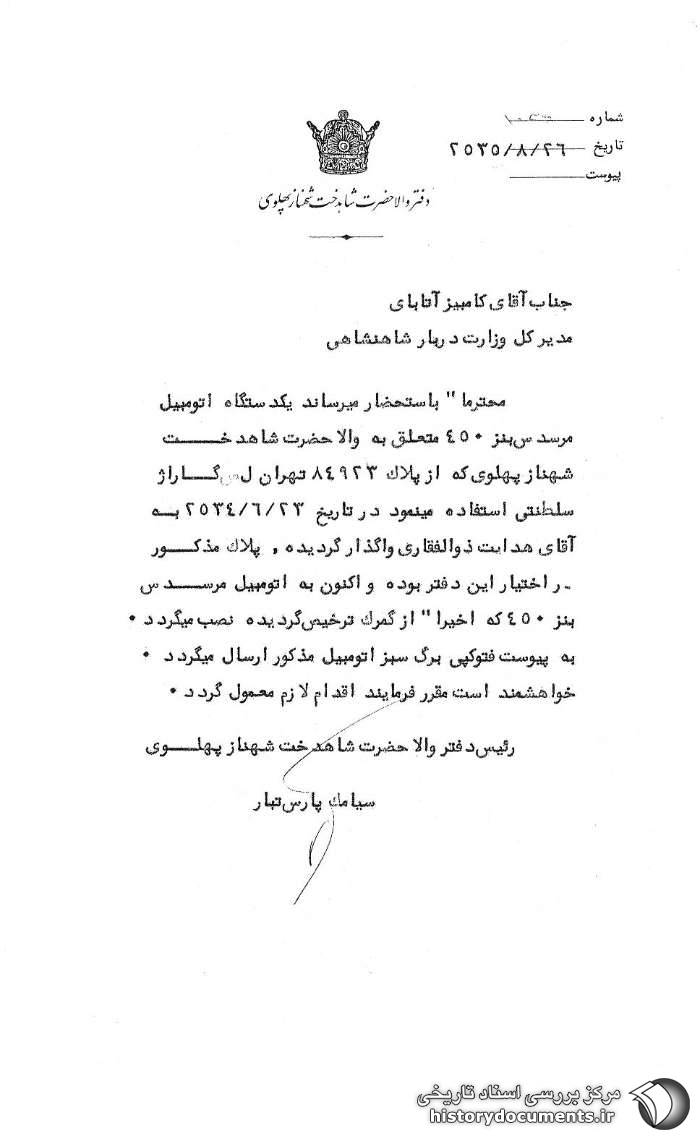 شماره
تاریخ ۲۵۳۵/۸/۲۶
پیوست
دفتر والاحضرت شاهدخت شهناز پهلوی
جناب آقای کامبیز آتابای
مدیر کل وزارت دربار شاهنشاهی
محترما" باستحضار میرساند یکدستگاه اتومبیل
مرسدس بنز ۴۵۰ متعلق به والاحضرت شاهدخــت
شهناز پهلوی که از پلاک ۸۴۹۲۳ تهران ل ص گــاراژ
سلطنتی استفاده مینمود در تاریخ ۲۵۳۴/۶/۲۳ بــه
آقای هدایت ذوالفقاری واگذار گردیده , پلاک مذکــور
ر اختیار این دفتر بوده و اکنون به اتومبیل مرســدس
بنز ۴۵۰ که اخیرا" از گمرک ترخیص گردیده نصب میگردد .
به پیوست فتوکپی برگ سبز اتومبیل مذکور ارسال میگردد .
خواهشمند است مقرر فرمایند اقدام لازم معمول گردد .
رئیس دفتر والاحضرت شاهدخت شهناز پهلــوی
سیامک پارس تبار
مرکز بررسی اسناد تاریخی
historydocuments.ir